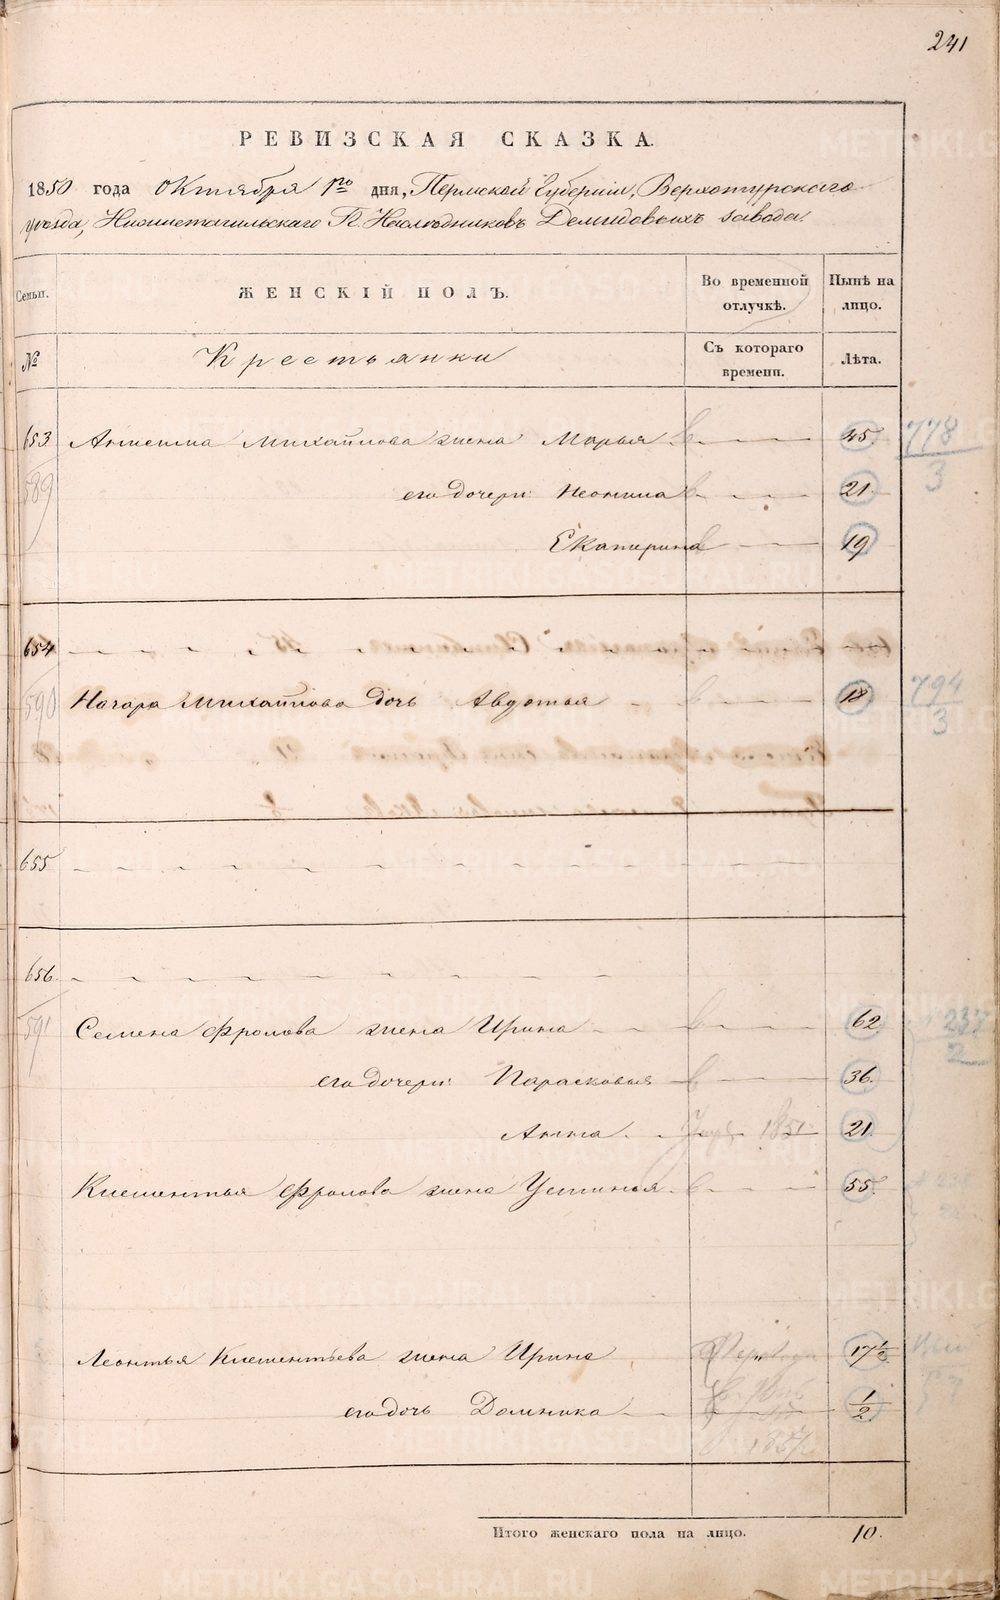 241
РЕВИЗСКАЯ СКАЗКА.
1850 года Октября 1го дня, Пермской Губернiи, Верхотурскаго
уѣзда, Нижнетагильскаго Г. Г. Наслѣдниковъ Демидовыхъ завода.
Семьи. ЖЕНСКІЙ ПОЛЪ. Во временной отлучкѣ. Нынѣ на лицо.
№ Крестьянки Съ котораго времени. Лѣта.
653 Михайлова жена Марья 45. 778/3
589 его дочери: Неонила 21.
Екатерина 19
654
590 Назара Михайлова дочь Авдотья 18 794/3
655
656
591 Семена Фролова жена Ирина 62 237/2
его дочери: Парасковья 36.
Анна 1851 21
Клементья Фролова жена Устинья 55.
Леонтья Клементьева жена Ирина 17 1/2
его дочь Домника 1/2
Итого женскаго пола на лицо. 10.
METRIKI.GASO-URAL.RU